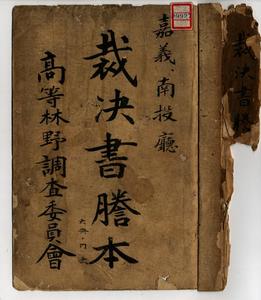 嘉義、南投廳
裁決書謄本
高等林野調査委員會
裁決書謄